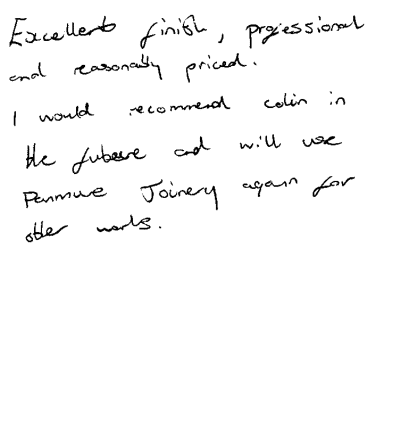 Excellent finish, professional
and reasonably priced.
I would recommend colin in
the future and will use
Panmure Joinery again for
other works.